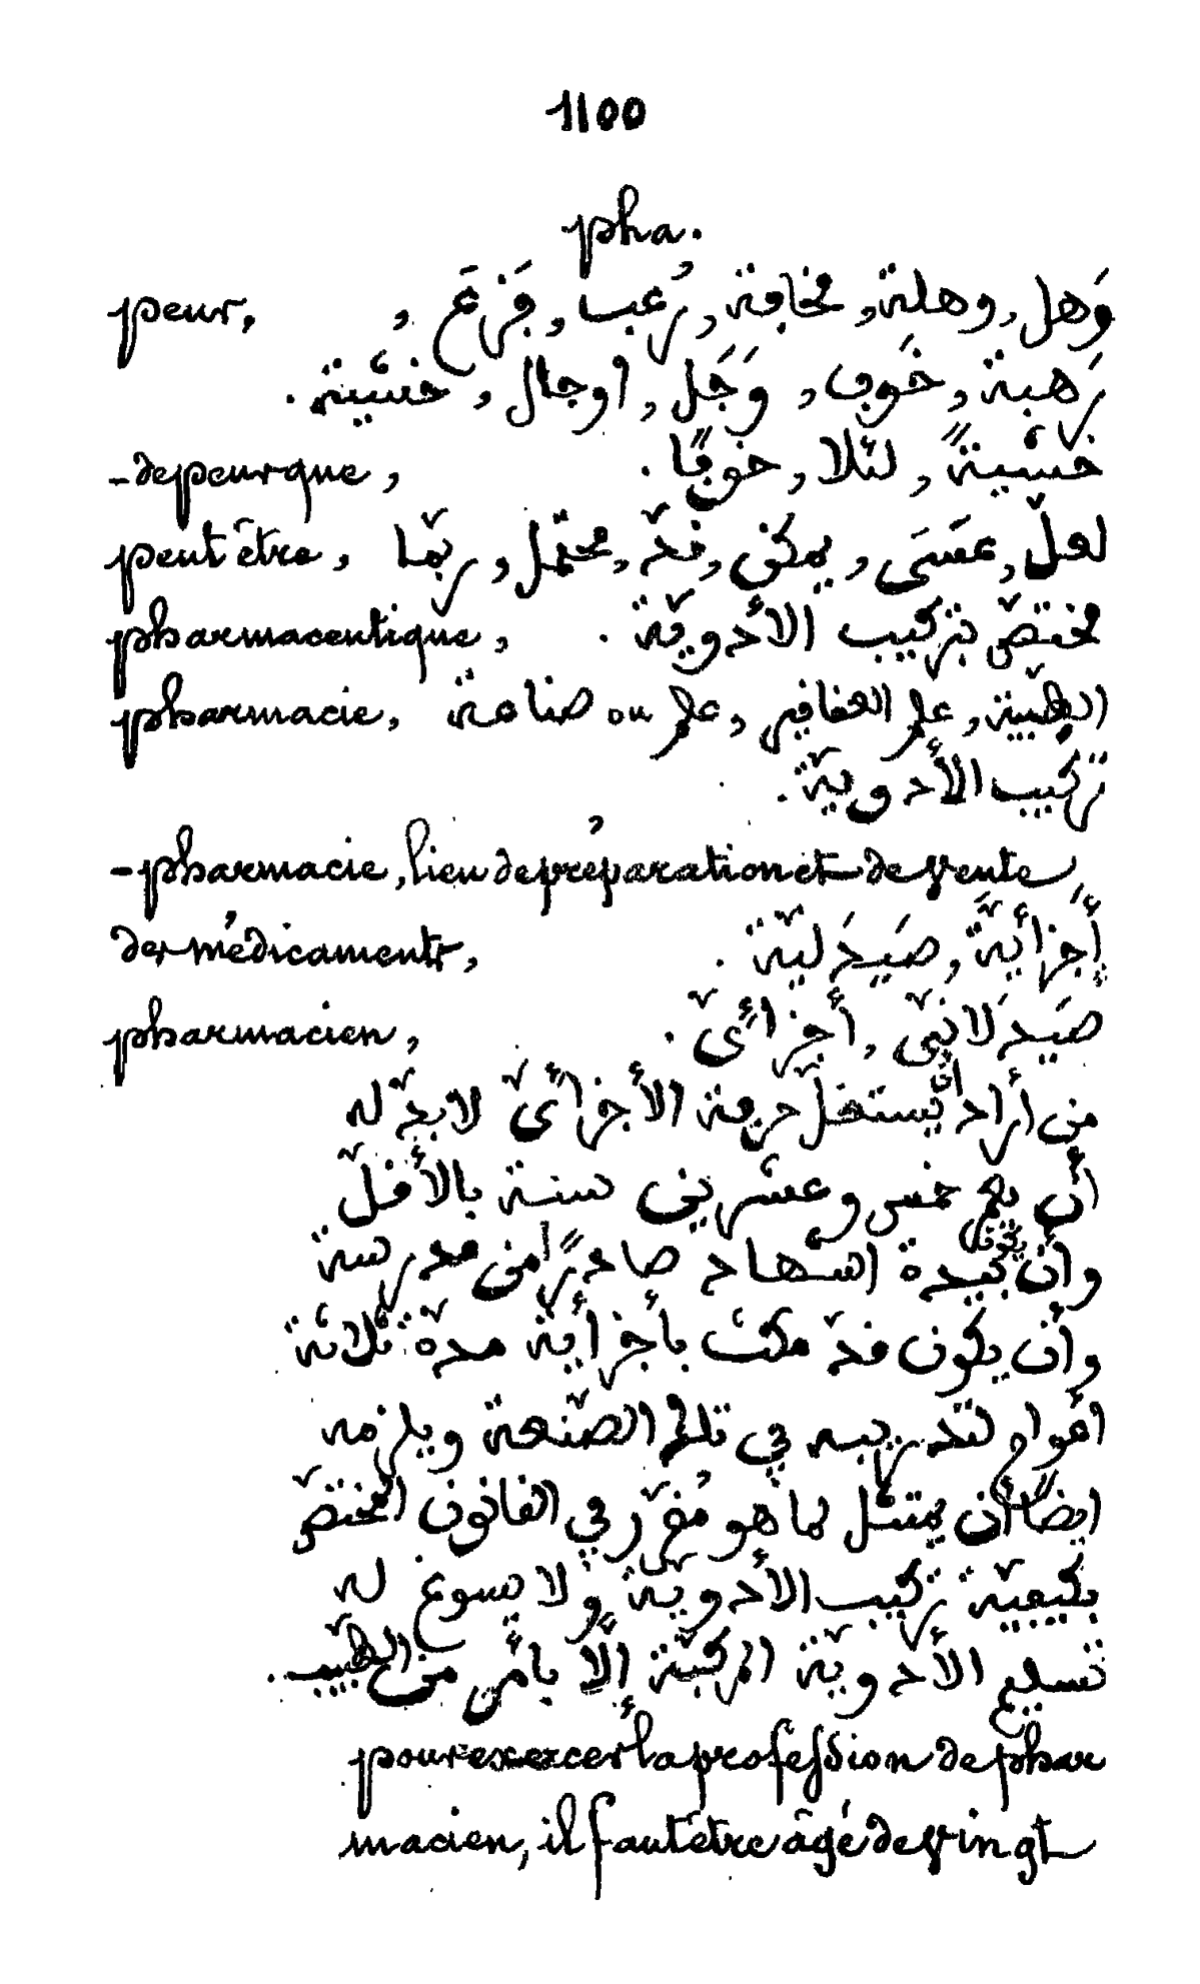 1100
pha.
peur, وَهل, وهلة, مخافة, رُعب, فَزَع,
رَهبة, خَوف, وَجَل, اوجال, خشية.
-de peur que, خشيةً, لئلا, خوفًا.
peut être, لعلّ, عسَى, يمكن, قدّ, محتمل, ربّما
pharmaceutique, مختصّ بتركيب الأدويّة.
pharmacie, الطبّيبة, علم العقاقير, علم ou صناعة
تركيب الأدويّة.
-pharmacie, lieu de préparation et de vente
des médicaments, أَجزأيّة, صَيدَليّة.
pharmacien, صَيدَلانيّ, أجزائيّ.
من أراد ان يستغلّ حرفة الأجزأيّ لا بدّ له
أن يعم خمس وعشرين سنة بالأقلّ
وأن يكون بيده اشهاد صادرًا من مدرسة
وأن يكون قدّ مكث بأجزأية مدّة ثلاثة
اعوام لتدريبه في تلك الصّنعة ويلزمه
ايضًا أن يمتثل لما هو مُقرّر في القانون المختصّ
بكيفيّة تركيب الأدويّة ولا يسوغ له
تسليم الأدويّة المركّبة إلّا بأمر من الطبّيب.
pour exercer la profession de phar
macien, il faut être âgé de vingt